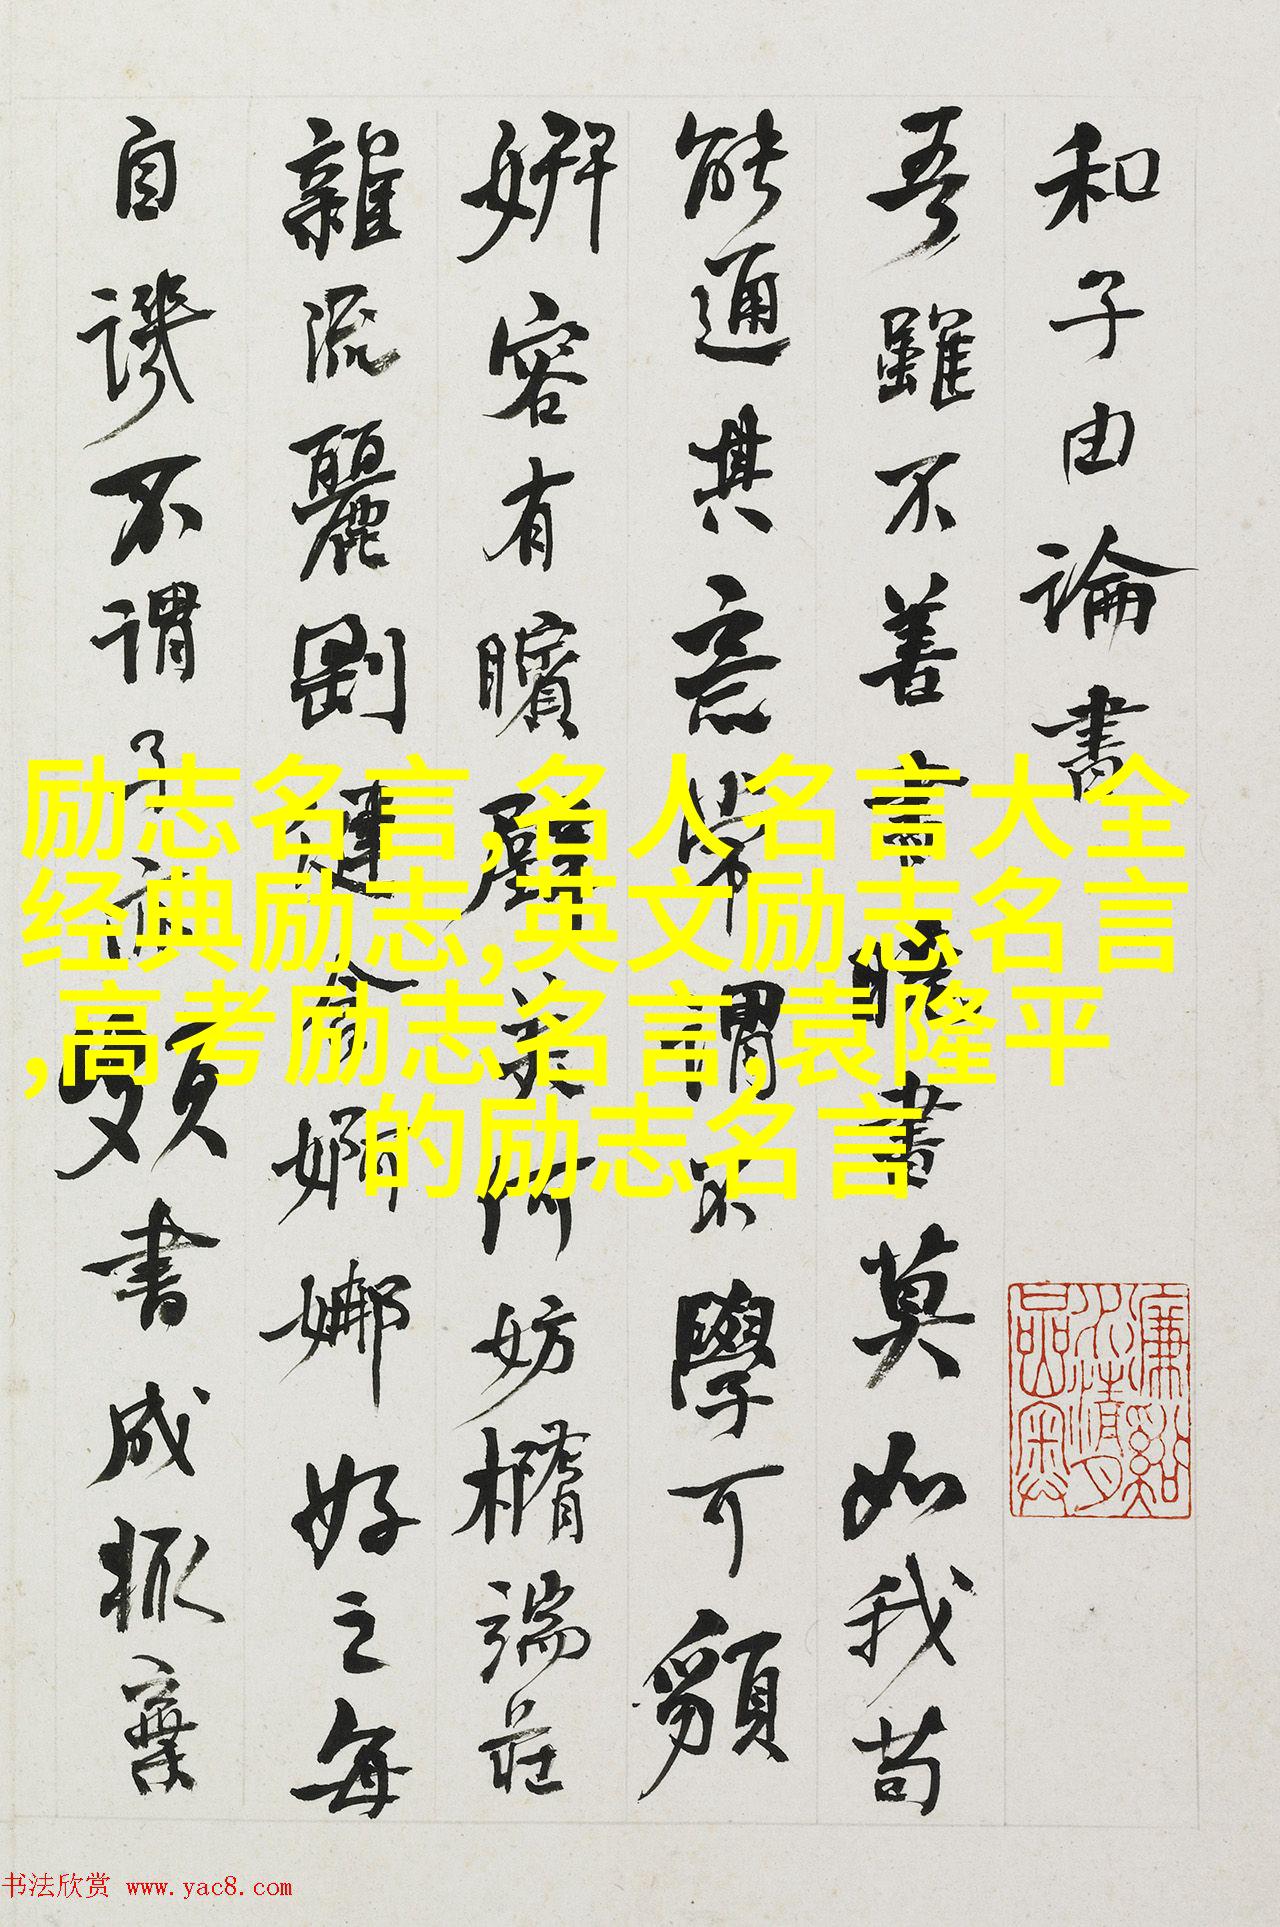 和子由論書
吾雖不善書曉書莫如我苟
能通其意常謂不學可貌
妍容有矉璧美何妨橢端莊
雜流麗剛健含婀娜好之每
自譏不謂子亦頗書成輒棄
励志名言,名人名言大全
经典励志,英文励志名言
,高考励志名言,袁隆平
的励志名言
书法欣赏 www.yac8.com